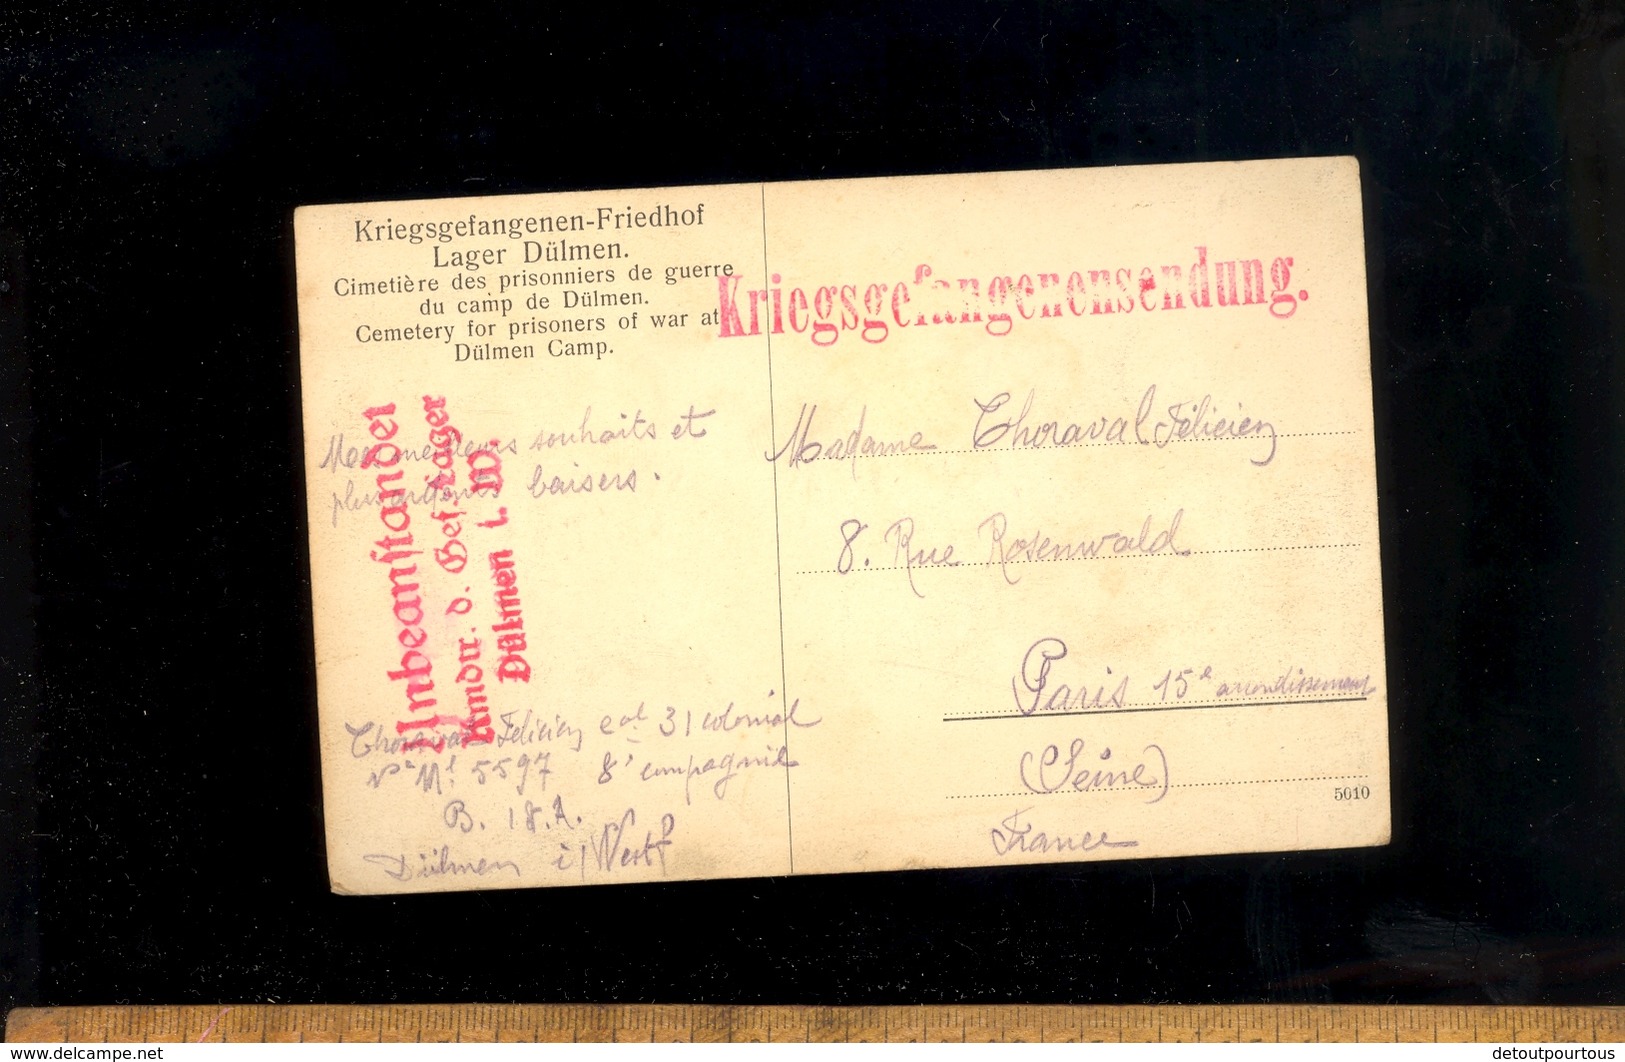 Kriegsgefangenen-Friedhof
Lager Dülmen.
Cimetière des prisonniers de guerre
du camp de Dülmen.
Cemetery for prisoners of war at
Dülmen Camp.
Kriegsgefangenensendung.
Unbeanstandet
Kmdtr. d. Gef. Lager
Dülmen i. W.
Mes meilleurs souhaits et
plus ardents baisers.
Thoraval Félicien cal 31 colonial
N° Ml 5597 8e compagnie
B. 18. A.
Dülmen i/Westf
Madame Thoraval Félicien
8. Rue Rosenwald
Paris 15e arrondissement
(Seine)
France
5010
delcampe.net
detoutpourtous